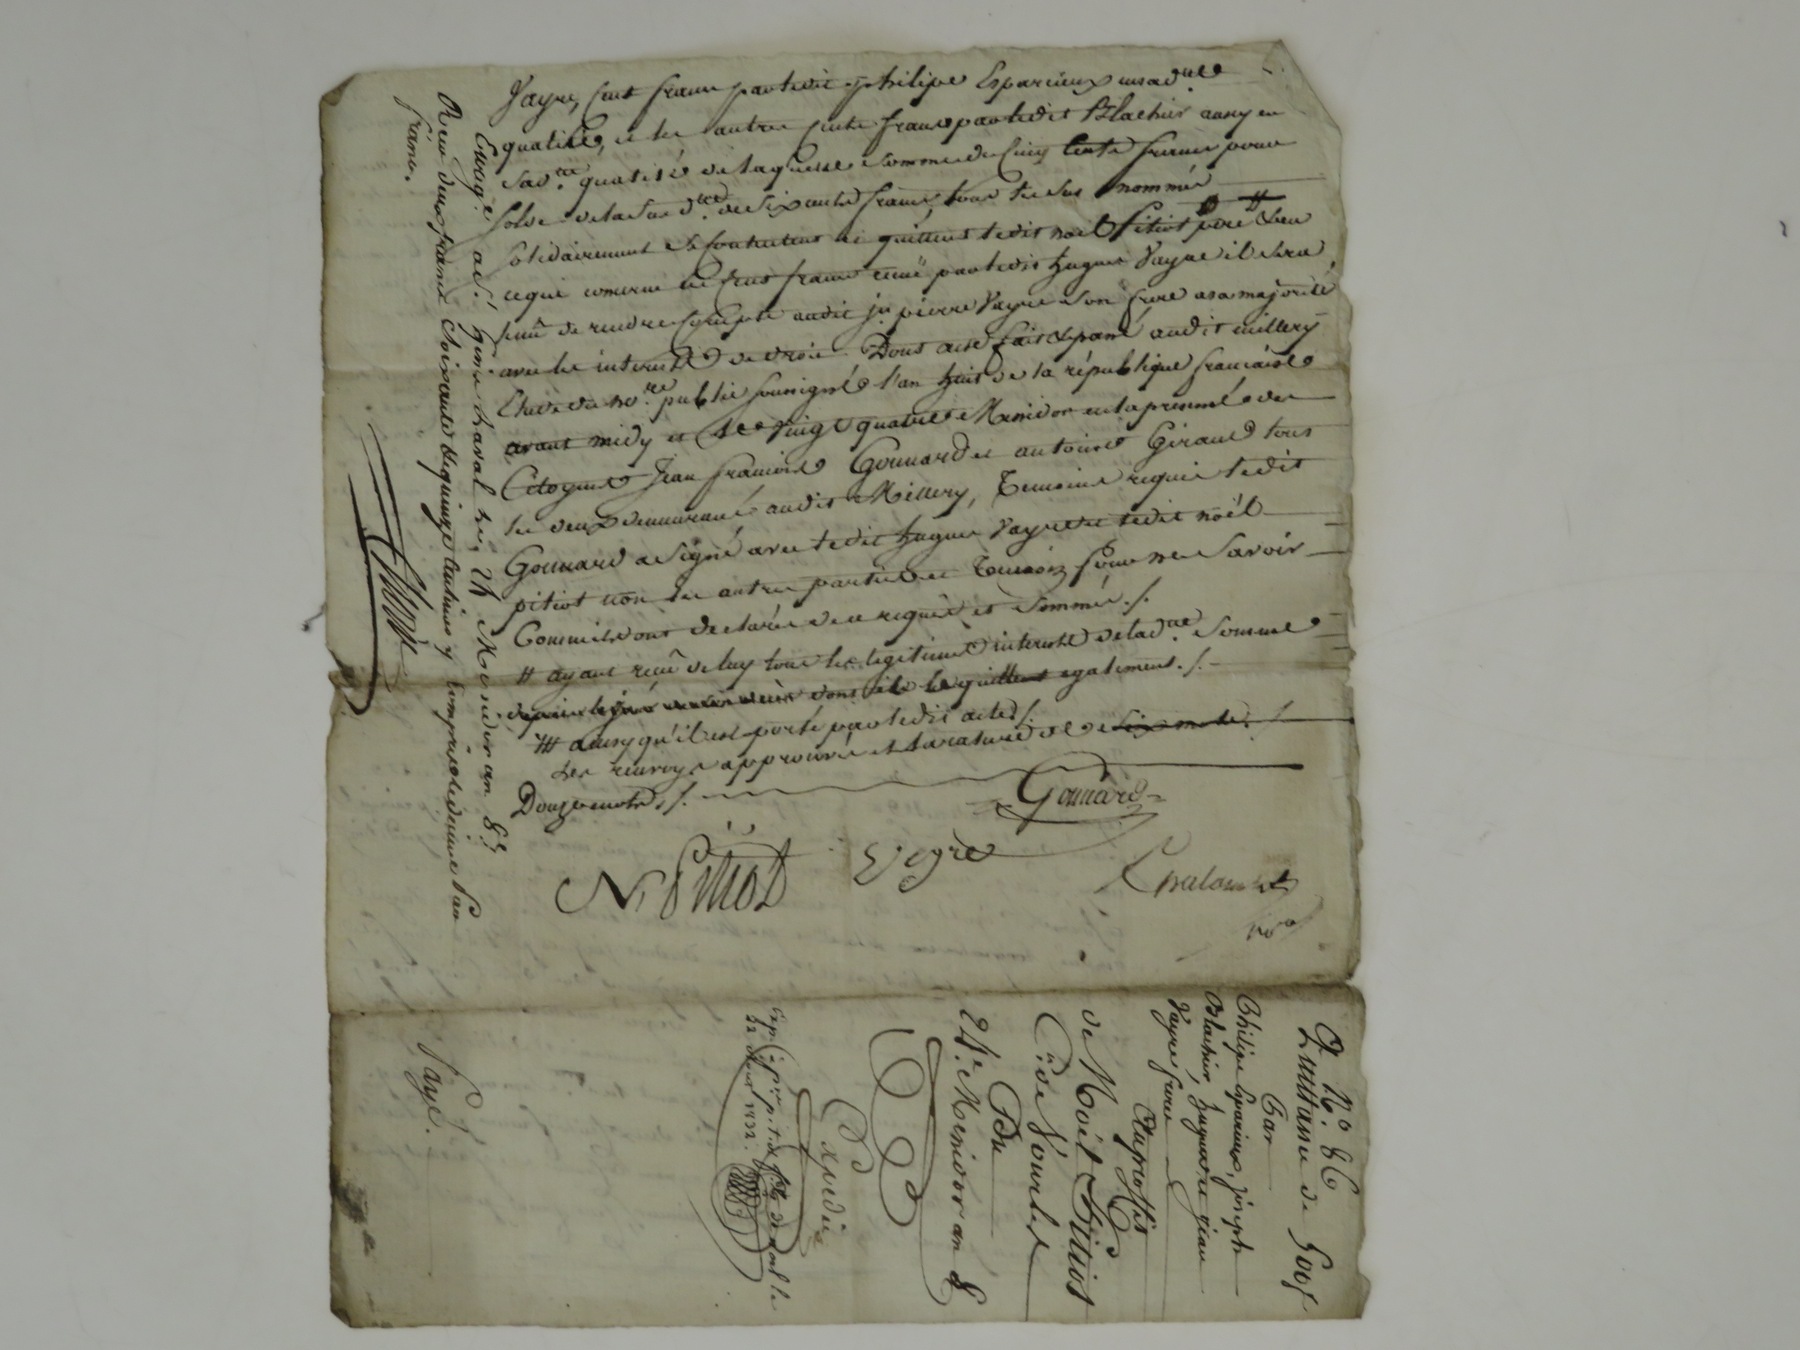 Vayre, Cent francs par ledit philipe Esparcieux en sad.ite
qualité, et les autres Cents francs par ledit Blachier aussy en
sad.ite qualité de laquelle somme de Cinq Cents francs pour
solde de la susd.ite de six cents francs, tous les sus nommés
solidairement se contentent et quittent ledit noël pitiot père # #
ce qui concerne les Cent francs reçus par ledit hugues Vayre il sera
tenu de rendre Compte audit jn pierre Vayre son frere a sa majorité
avec les interrets de droit. Dont acte fait et passé audit millery
Etude du no.re public soussigné l'an huit de la république francaise
avant midy et le vingt quatre Messidor en la presence des
Citoyens Jean francois Gounard et antoine Giraud tous
les deux demeurants audit Millery, Temoins requis ledit
Gounard a signé avec ledit hugues Vayre et ledit noël
pitiot non les autres parties et Temoin pour ne savoir
Comme ils ont declaré de ce requis et sommés ./.
# ayant reçu de luy tous les legitimes interrets de lad.ite somme
dont ils le quittent egalement ./.
## ainsy qu'il est porté par ledit acte ./.
les renvoys approuvés et la rature de
Douze mots ./.
Gounard
N. Pitiot
Vayre
no.re
Enreg.é à S.t genis Laval le, 24 Messidor an 8.e
Reçu deux francs soixante et quinze centimes y compris le decime par
franc.
N.o 86
Quittance de 500 f
Par
Philipe Esparcieux, joseph
Blachier, hugues et jean
Vayre freres
Au proffit
de Noël Pitiot
C.n de Vourles
Du
24.e Messidor an 8
Expediée
Payé.